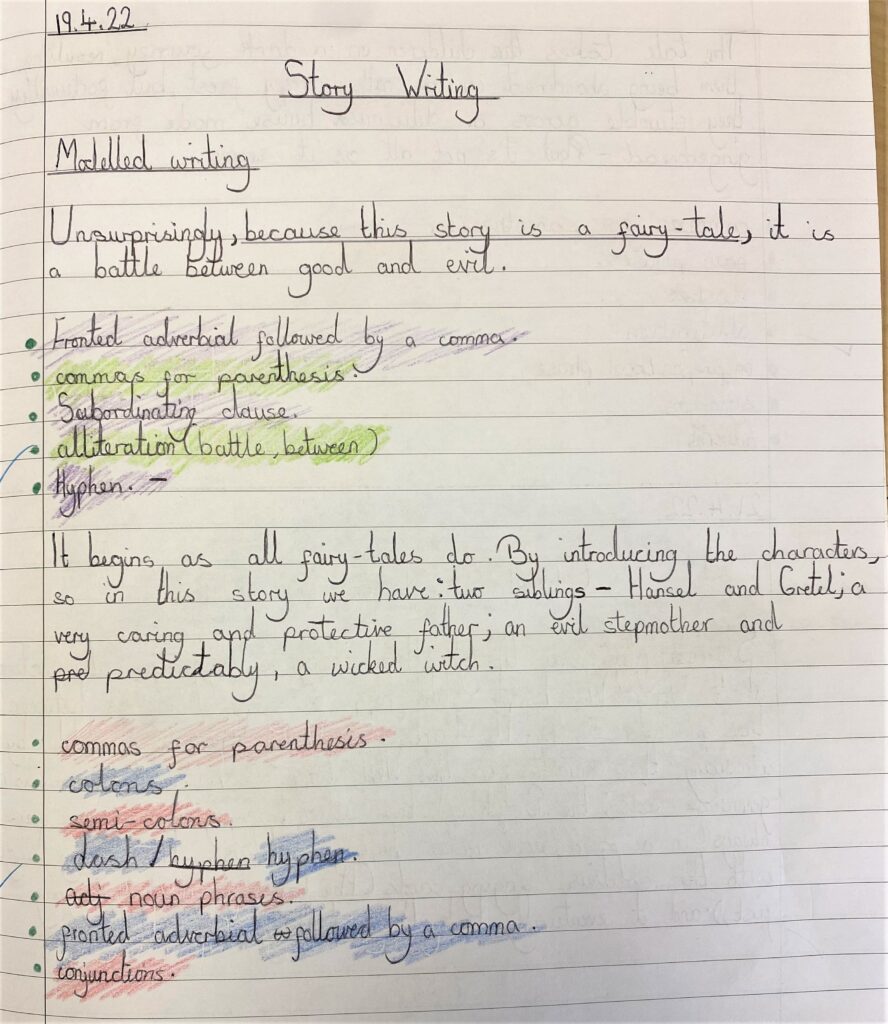 19.4.22
Story Writing
Modelled writing
Unsurprisingly, because this story is a fairy-tale, it is
a battle between good and evil.
Fronted adverbial followed by a comma.
commas for parenthesis.
Subordinating clause.
alliteration (battle, between)
Hyphen. -
It begins as all fairy-tales do. By introducing the characters,
so in this story we have: two siblings - Hansel and Gretel; a
very caring and protective father; an evil stepmother and
pre predictably, a wicked witch.
commas for parenthesis.
colons.
semi-colons.
dash / hyphen hyphen.
adj noun phrases.
fronted adverbial followed by a comma.
conjunctions.